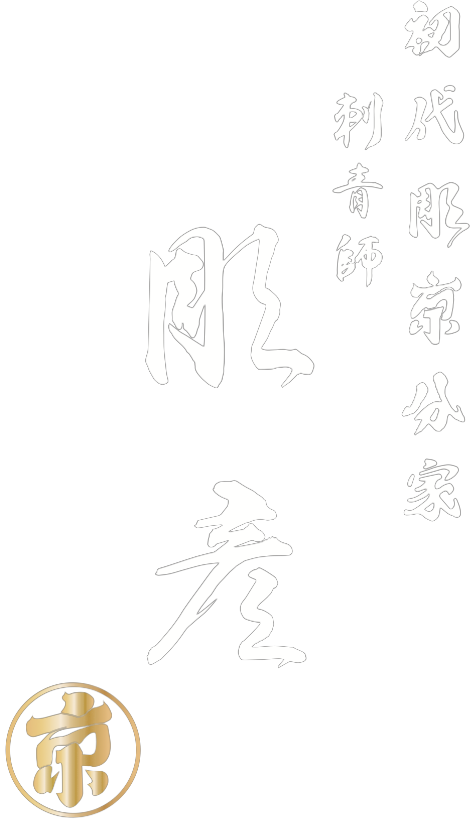 初代彫京分家
刺青師
彫彦
京